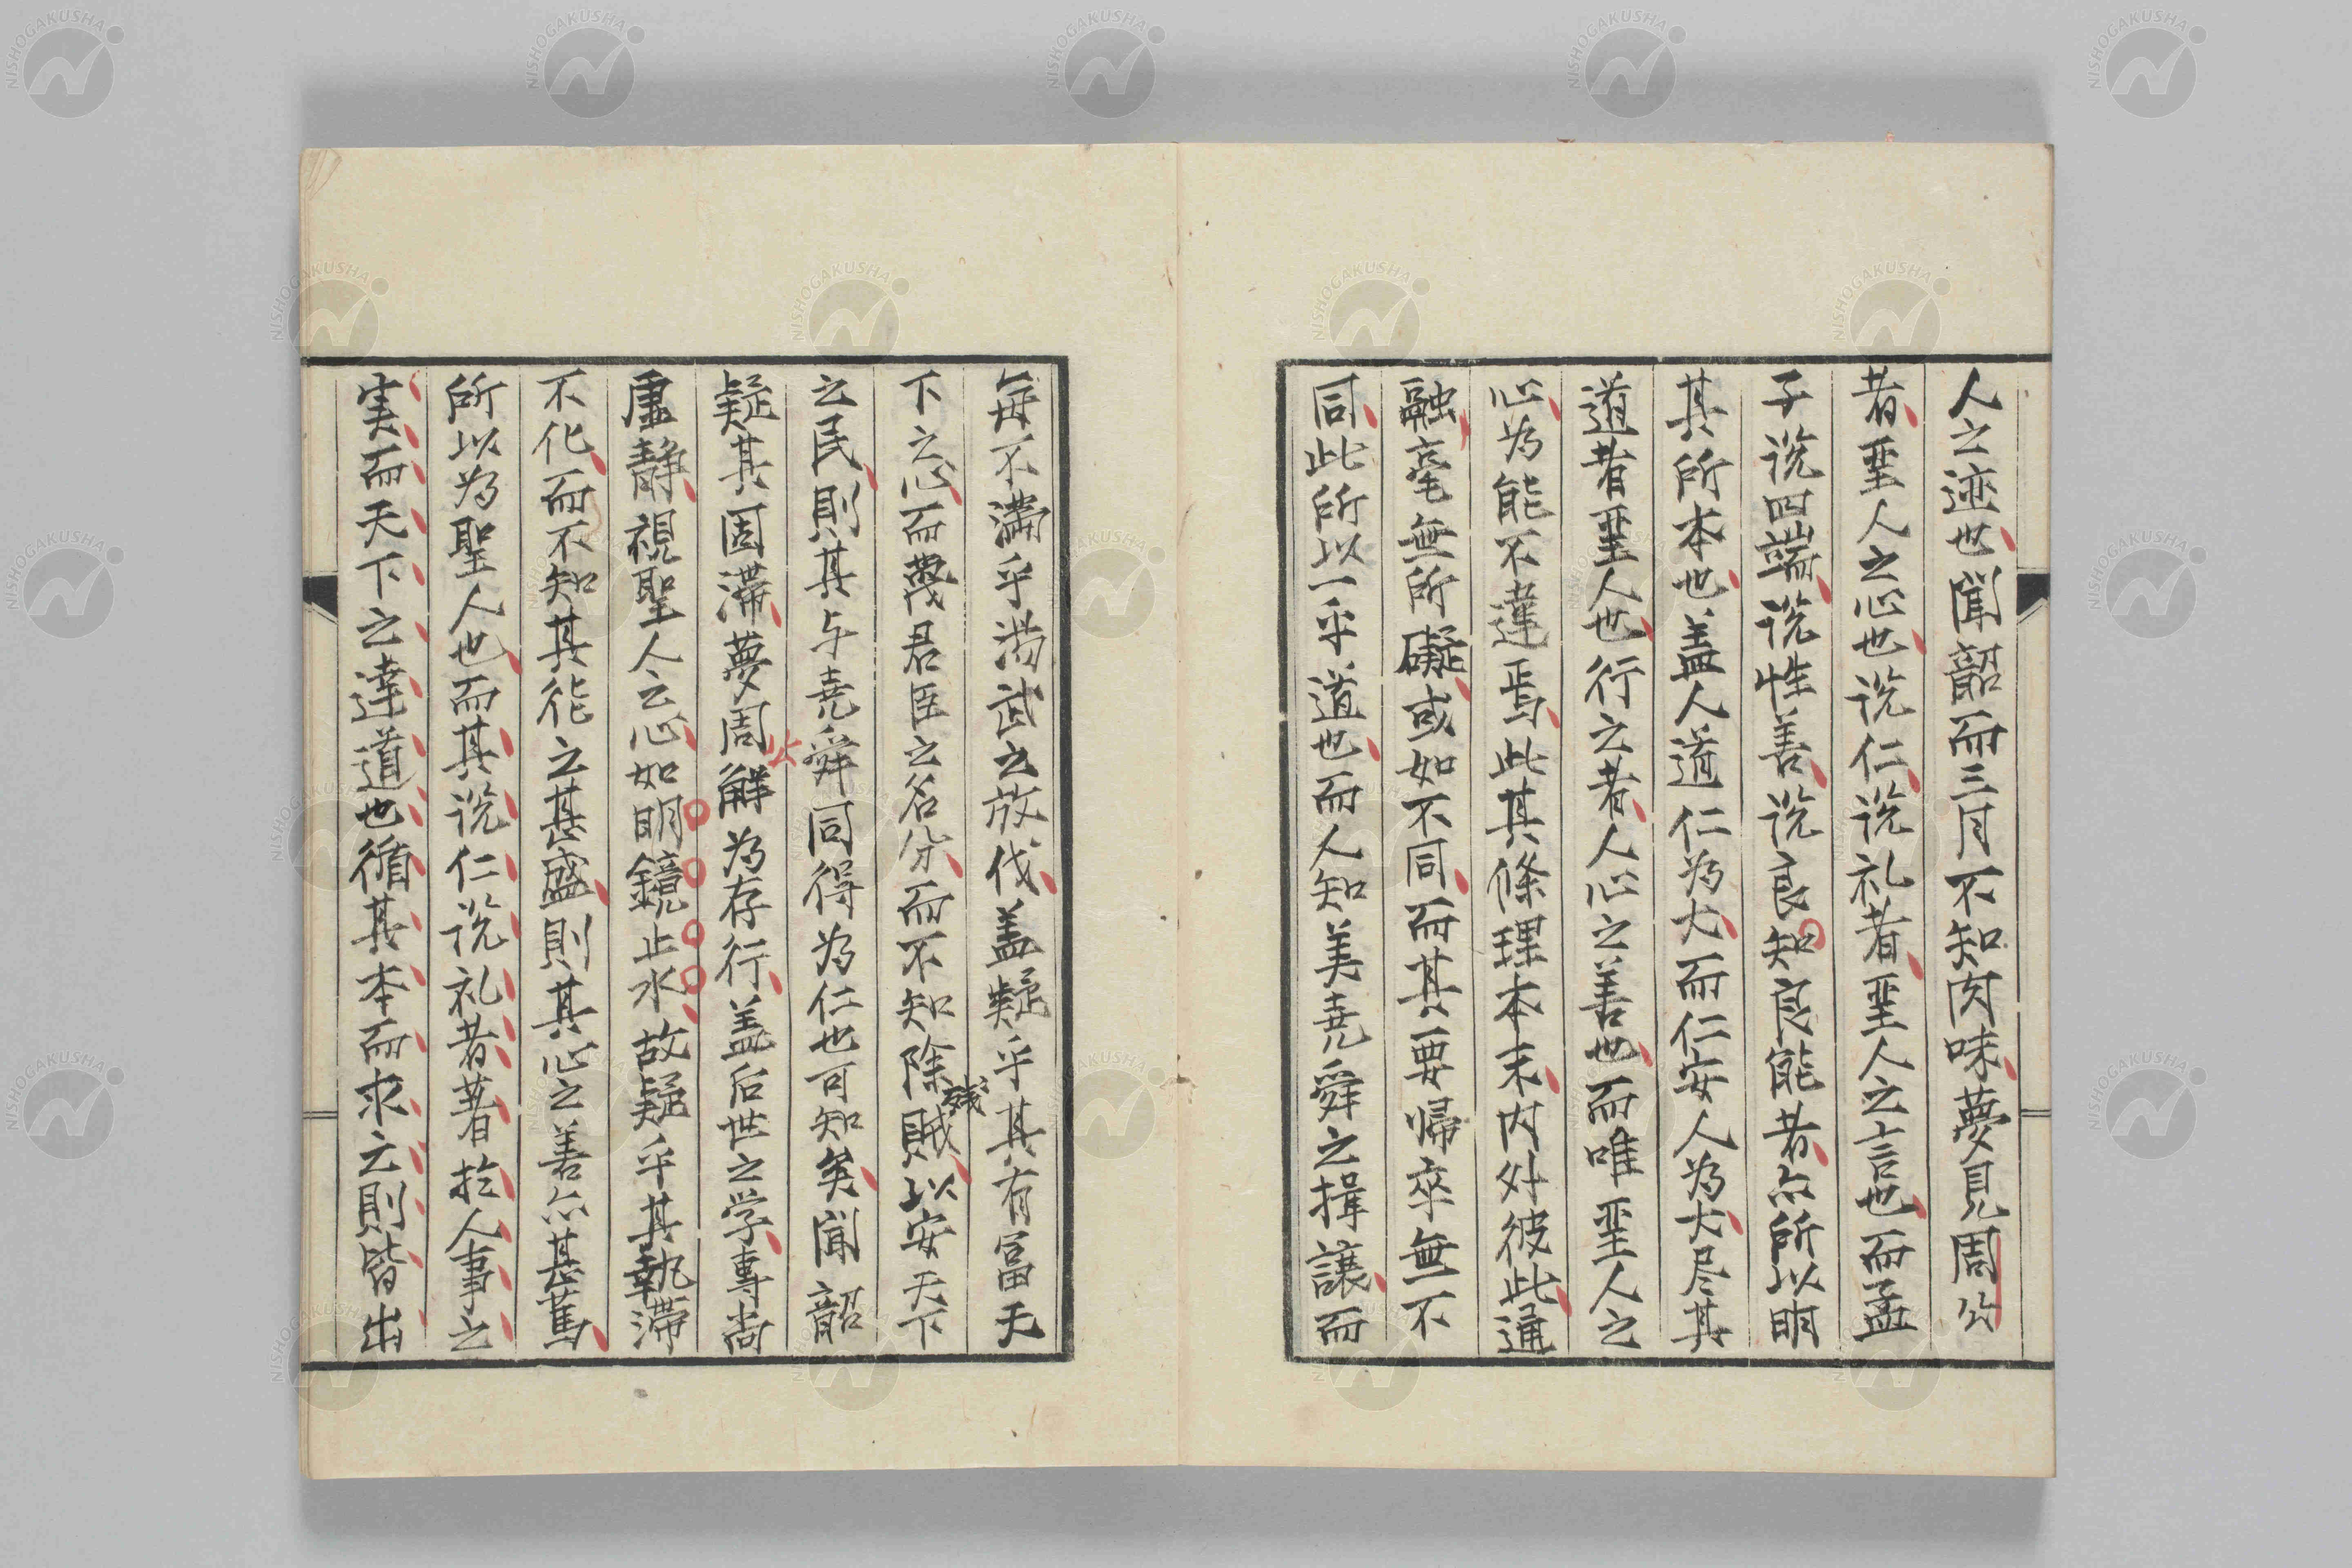 人之迹也聞韶而三月不知肉味夢見周公
者聖人之心也说仁说礼者聖人之言也而孟
子说四端说性善说良知良能者亦所以明
其所本也盖人道仁为大而仁安人为大尽其
道者聖人也行之者人心之善也而唯聖人之
心为能不違焉此其條理本末内外彼此通
融毫無所礙或如不同而其要帰卒無不
同此所以一乎道也而人知美堯舜之揖讓而
每不滿乎湯武之放伐盖疑乎其有富天
下之心而蔑君臣之名分而不知除残賊以安天下
之民則其与堯舜同得为仁也可知矣聞韶
疑其固滞夢周公解为存行盖后世之学專尚
虚静視聖人之心如明鏡止水故疑乎其執滞
不化而不知其能之甚盛則其心之善亦甚篤
所以为聖人也而其说仁说礼者著於人事之
実而天下之達道也循其本而求之則皆出
NISHOGAKUSHA